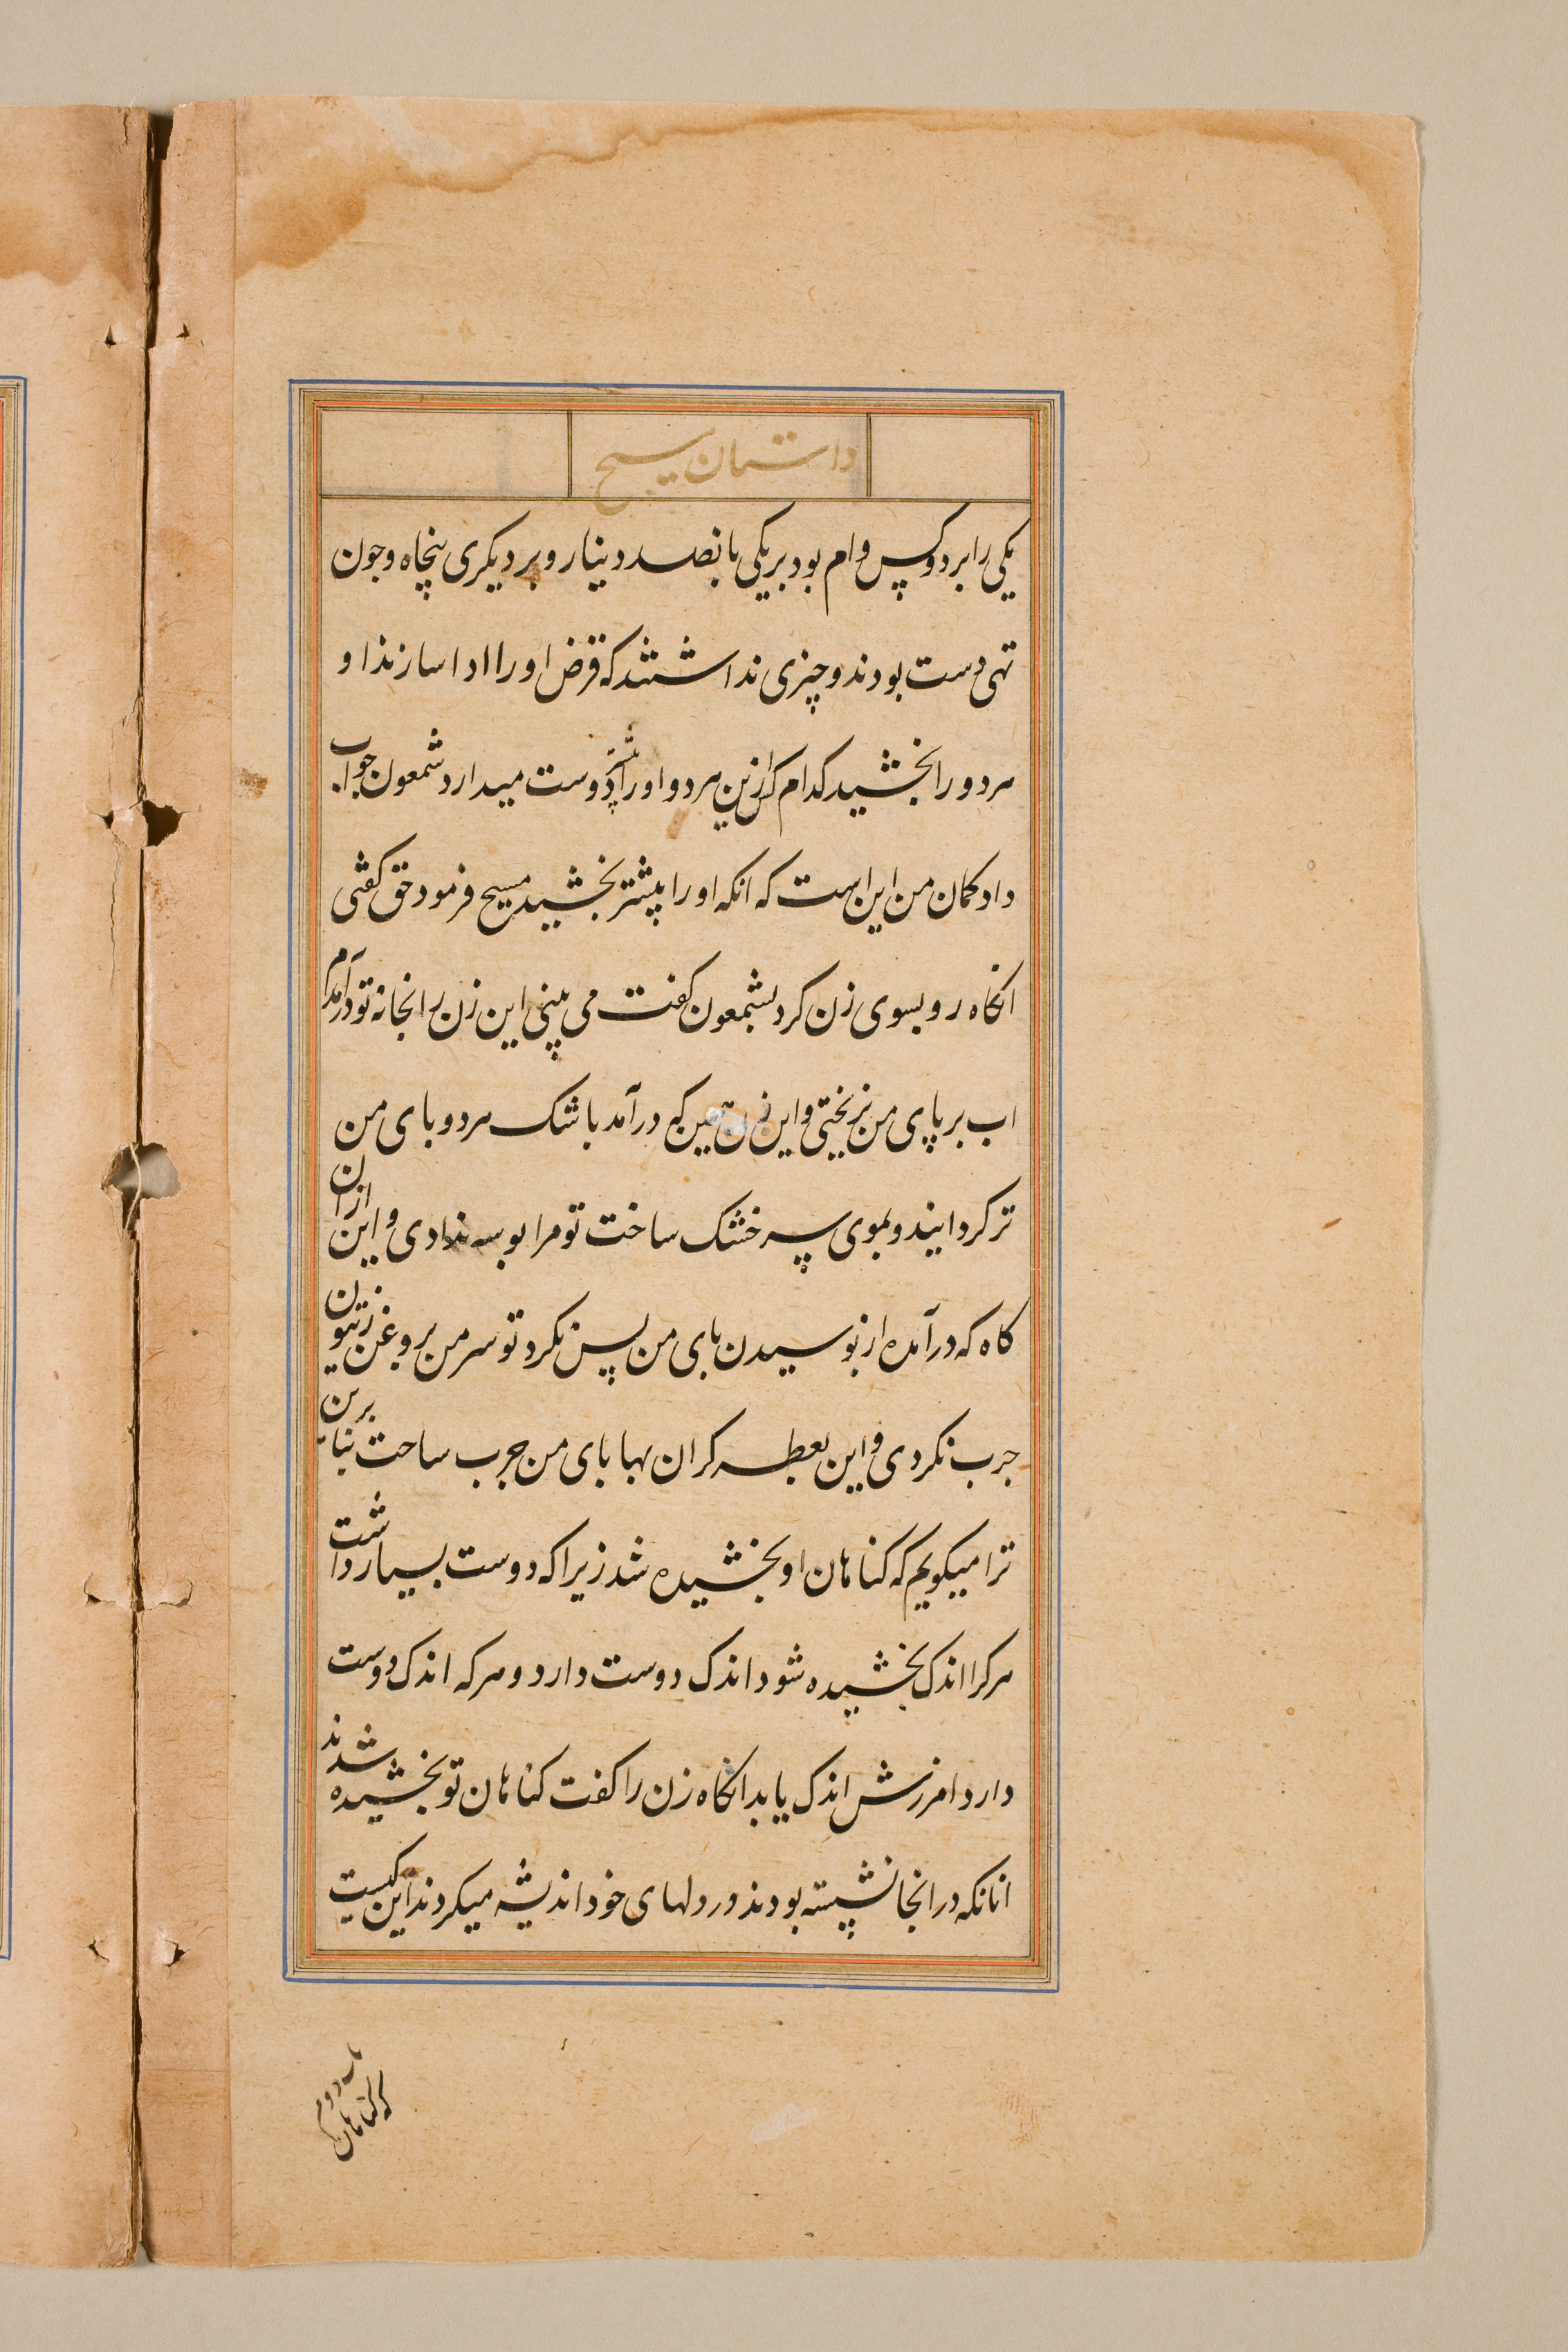 داستان مسیح
یکی را بر دو کس وام بود بر یکی پانصد دینار و بر دیکری پنجاه و جون
تهی دست بودند و چیزی نداشتند که قرض او را ادا سازند او
هر دو را بخشید کدام کس ازین هر دو او را پیشتر دوست میدارد شمعون جواب
داد کمان من این است که انکه او را پیشتر بخشید مسیح فرمود حق کفتی
انکاه رو بسوی زن کرد بشمعون کفت می بینی این زن را بخانه تو درآمدم
اب بر پای من نریختی و این زن همین که درآمد باشک هر دو پای من
تر کردانید و بموی سر خشک ساخت تو مرا بوسه ندادی و این ازان
کاه که درآمده از بوسیدن پای من پس نکرد تو سر من بروغن زیتون
جرب نکردی و این بعطر کران بها پای من جرب ساخت بنابرین
ترا میکویم که کناهان او بخشیده شد زیرا که دوست بسیار داشت
هر کرا اندک بخشیده شود اندک دوست دارد و هر که اندک دوست
دارد امرزش اندک یابد انکاه زن را کفت کناهان تو بخشیده شدند
انانکه در انجا نشسته بودند در دلهای خود اندیشه میکردند این کیست
باب دوم
که کناهان